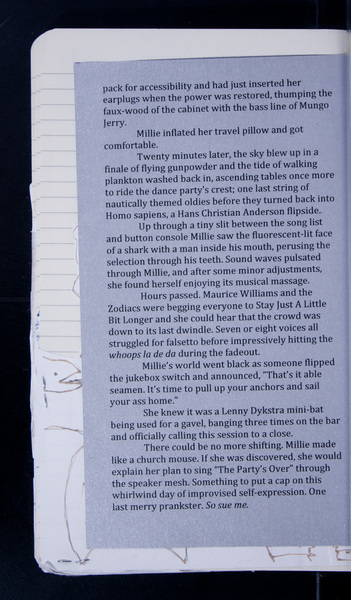 pack for accessibility and had just inserted her
earplugs when the power was restored, thumping the
faux-wood of the cabinet with the bass line of Mungo
Jerry.
Millie inflated her travel pillow and got
comfortable.
Twenty minutes later, the sky blew up in a
finale of flying gunpowder and the tide of walking
plankton washed back in, ascending tables once more
to ride the dance party's crest; one last string of
nautically themed oldies before they turned back into
Homo sapiens, a Hans Christian Anderson flipside.
Up through a tiny slit between the song list
and button console Millie saw the fluorescent-lit face
of a shark with a man inside his mouth, perusing the
selection through his teeth. Sound waves pulsated
through Millie, and after some minor adjustments,
she found herself enjoying its musical massage.
Hours passed. Maurice Williams and the
Zodiacs were begging everyone to Stay Just A Little
Bit Longer and she could hear that the crowd was
down to its last dwindle. Seven or eight voices all
struggled for falsetto before impressively hitting the
whoops la de da during the fadeout.
Millie's world went black as someone flipped
the jukebox switch and announced, "That's it able
seamen. It's time to pull up your anchors and sail
your ass home."
She knew it was a Lenny Dykstra mini-bat
being used for a gavel, banging three times on the bar
and officially calling this session to a close.
There could be no more shifting. Millie made
like a church mouse. If she was discovered, she would
explain her plan to sing "The Party's Over" through
the speaker mesh. Something to put a cap on this
whirlwind day of improvised self-expression. One
last merry prankster. So sue me.